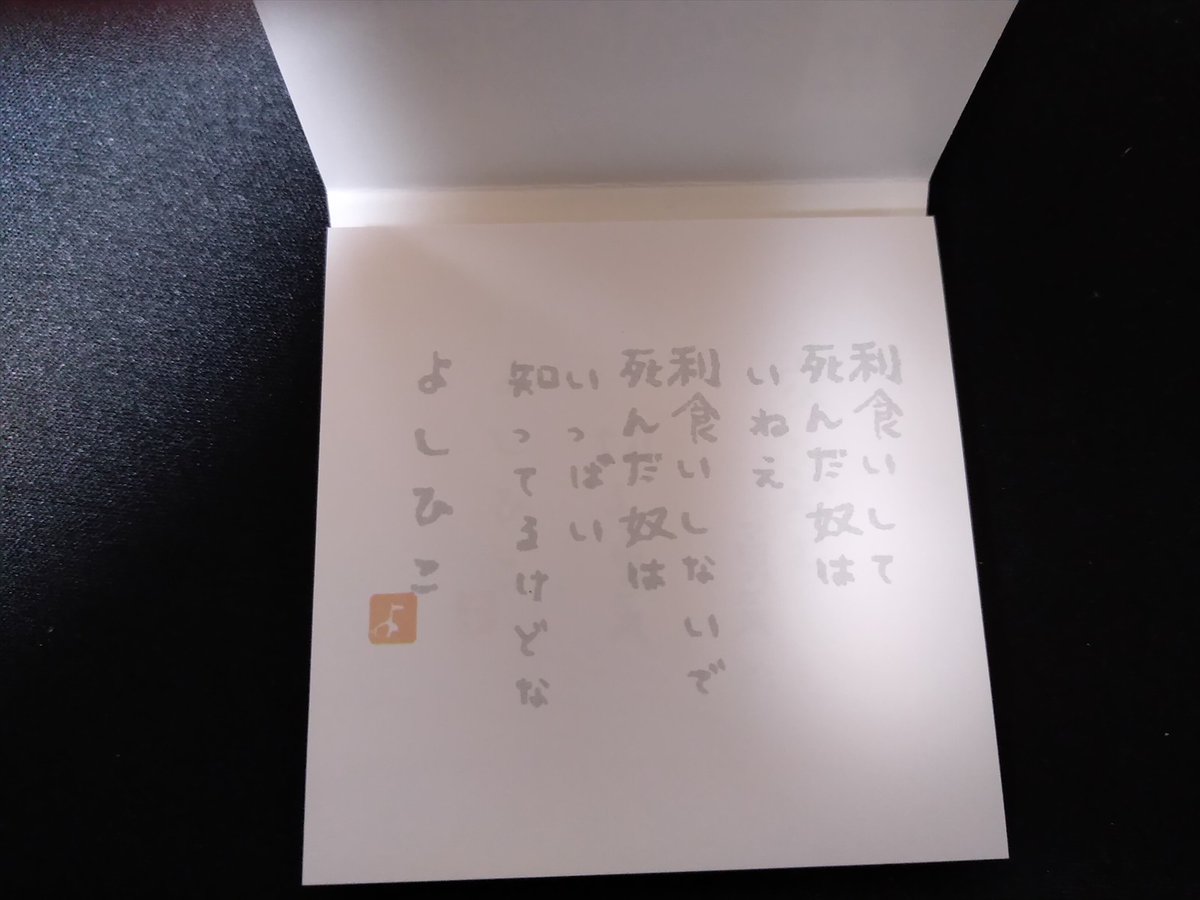 利食いして
死んだ奴は
いねえ
利食いしないで
死んだ奴は
いっぱい
知ってるけどな
よしひこ
よ